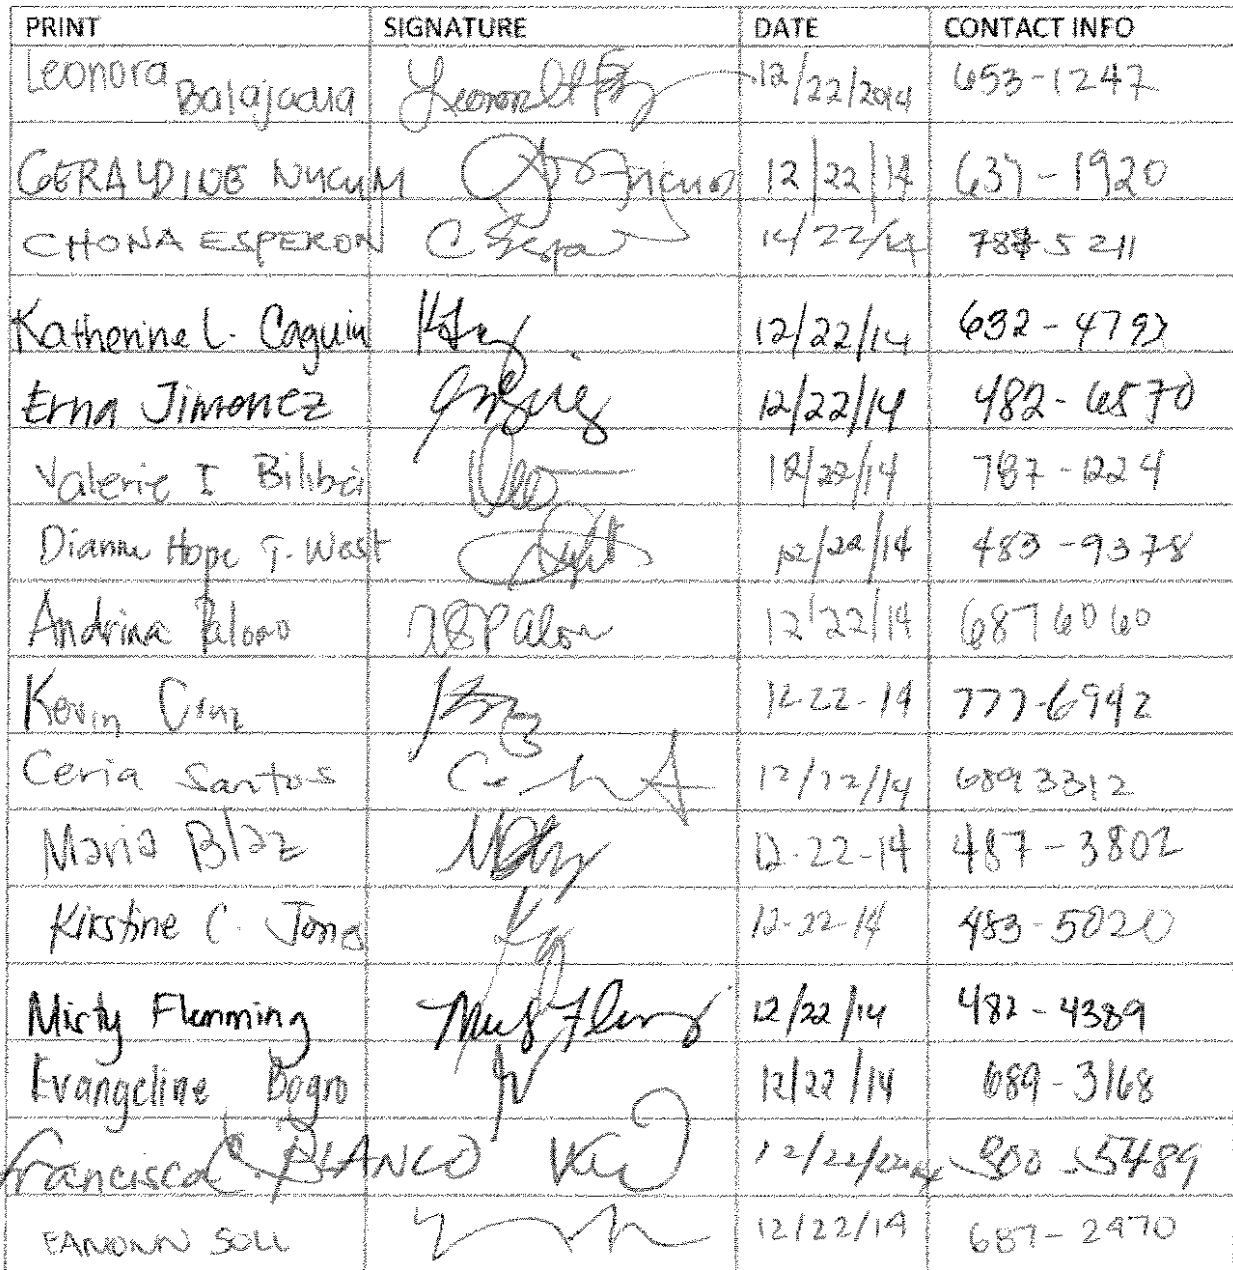 PRINT SIGNATURE DATE CONTACT INFO
Leonora Balajadia 12/22/2014 653-1247
GERALDINE NUCUM 12/22/14 637-1920
CHONA ESPERON C 12/22/14 5211
Katherine L. Caguin 12/22/14 632-4793
Erna Jimenez 12/22/14 482-6570
Valerie I Bilibei 12/22/14 787-1224
Dianne Hope T. West 12/22/14 483-9378
Andrina Palomo 12/22/14 687 6060
Kevin Cruz 12-22-14 777-6942
Ceria Santos 12/22/14 689 3312
Maria Blaz 12-22-14 487-3802
Kirstine C. Jones 12-22-14 483-5020
Misty Flemming 12/22/14 482-4389
Evangeline 12/22/14 689-3168
Francisca C. BLANCO 5489
SOLL 12/22/14 687-2970